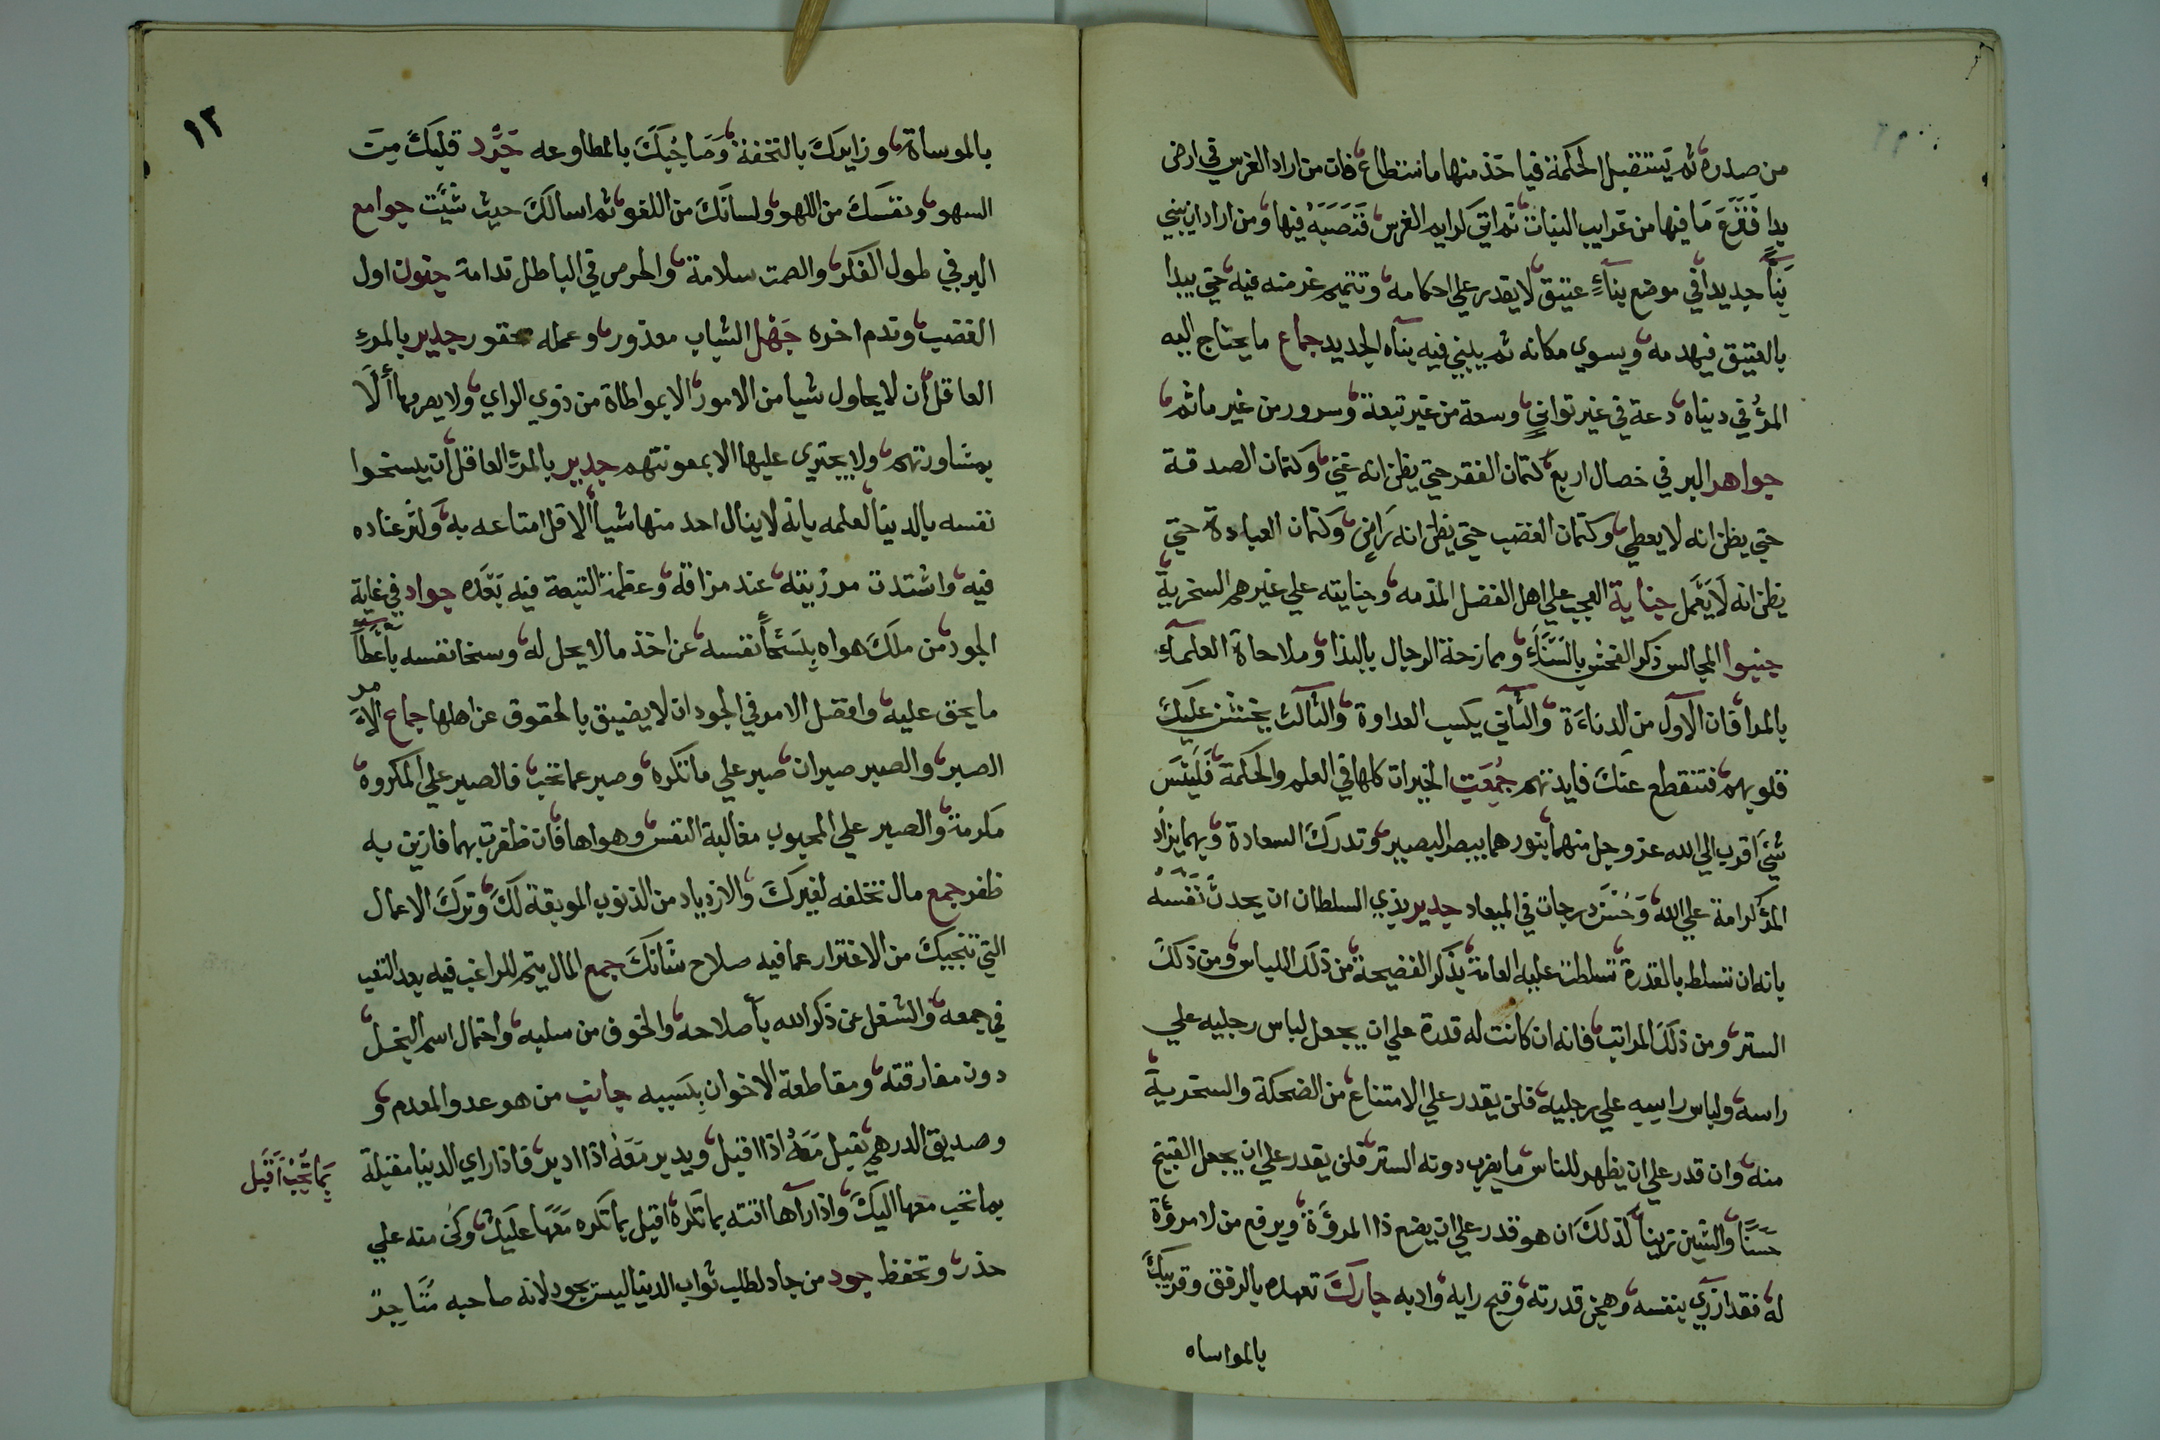 من صدره ثم يستقبل الحكمة فياخذ منها ما استطاع فان من اراد الغرس في ارض
بدا فَقَلَعَ مَا فيها من غرايب النبات ثم اتي كرايم الغرس فَنَصَبَهُ فيها ومن اراد ان يبني
بِنَأً جديداً في موضع بنآءٍ عتيق لا يقدر علي احكامه وتتميم غرضه فيه حتي يبدا
بالعتيق فيهدمه ويسوي مكانه ثم يبني فيه بناه الجديد جماع ما يحتاج اليه
المرؤ في دنياه دعة في غير تواني وسعة من غير تبعة وسرور من غير ماثم
جواهر البر في خصال اربع كتمان الفقر حتي يظن انه غني وكتمان الصدقة
حتي يظن انه لا يعطي وكتمان الغضب حتي يظن انه رَاضٍ وكتمان العبادة حتي
يظن انه لَا يَعْمل جناية العجب علي اهل الفضل المذمه وجنايته علي غيرهم السخرية
جنبوا المجالس ذكر الفحش بالنسآء وممازحة الرجال بالبذا وملاحاة العلمآء
بالمرا فان الآول من الدناءة والثاني يكسب العداوة والثالث يخشن عليك
قلوبهم فتنقطع عنك فايدتهم جُمِعَت الخيرات كلها في العلم والحكمة فَلَيْسَ
شيَ اقرب الي الله عز وجل منهما بنورهما يبصر البصير وتدرك السعادة وبهما يزاد
المرؤ كرامة علي الله وحُسْن درجات في الميعاد جدير بذي السلطان ان يحدث نَفْسَهُ
بانه ان تسلط بالقدرة تسلطت عليه العامة بذكر الفضيحة من ذلك اللباس ومن ذلك
الستر ومن ذلك المراتب فانه ان كانت له قدرة علي ان يجعل لباس رجليه علي
راسه ولباس راسيه علي رجليه فلن يقدر علي الامتناع من الضحكة والسخرية
منه وان قدر علي ان يظهر للناس ما يضرب دونه الستر فلن يقدر علي ان يجعل القبيح
حَسَنًا والشين تزيينا كذلك ان هو قدر علي ان يضع ذا المرؤة ويرفع من لا مرؤة
له فقد ازري بنفسه وهجن قدرته وقبح رايه وادبه جارك تعهده بالرفق وقريبك
بالمواساه
١٣
بالموساة وزايرك بالتحفة وَصَاحِبَك بالمطاوعه جَرِّد قلبك مِن
السهو ونفسك من اللهو ولسانك من اللغو ثم اسالك حيث شيت جوامع
البر في طول الفكر والصمت سلامة والحرص في الباطل ندامة جنون اول
الغضب وندم اخره جَهْل الشباب معذور وعمله محقور جدير بالمرءِ
العاقل أن لا يحاول شيا من الامور الا بمواطاة من ذوي الراي ولا يصرمها ألَا
بمشاورتهم ولا يجتري عليها الا بمعونتهم جدير بالمرء العاقل أن يسخوا
نفسه بالدنيا لعلمه بانه لا ينال احد منها شيأ الا قل امتاعه به وكثر عناده
فيه واشتدت مرزيته عند فراقه وعظمت التبعة فيه بَعْدَه جواد في غاية
الجود من ملك هواه بِسَخأ نفسه عن اخذ ما لا يحل له وسخا نفسه بأعْطآ
ما يحق عليه وافضل الامر في الجود ان لا يضيق بالحقوق عن اهلها جماع الأمر
الصبر والصبر صبران صبر علي ما تكره وصبر عما تحب فالصبر علي المكروه
مكرمة والصبر علي المحبوب مغالبة النفس وهواها فان ظفرت بهما فازين به
ظفر جمع مال تخلفه لغيرك والازدياد من الذنوب الموبقة لك وترك الاعمال
التي تنجيك من الاغترار عما فيه صلاح شانك جمع المال يتم للراغب فيه بعد التعب
في جمعه والشغل عن ذكر الله بأصلاحه والخوف من سلبه واحتمال اسم البخل
دون مفارقته ومقاطعة الاخوان بِسَببه جانب من هو عدو المعدم و
وصديق الدرهم يقبل مَعَهُ اذا اقبل ويدير مَعَهُ اذا ادبر فاذا راي الدنيا مقبلة
بما تحب معها اليك واذا رآها اتته بما تكره اقبل بما تكره مَعَهَا عليك وكن منه علي
بما تُحِبُ اقْبَل
حذر وتحفظ جود من جاد لطلب ثواب الدنيا ليس بجود لانه صاحبه مُتَاجِرٌ